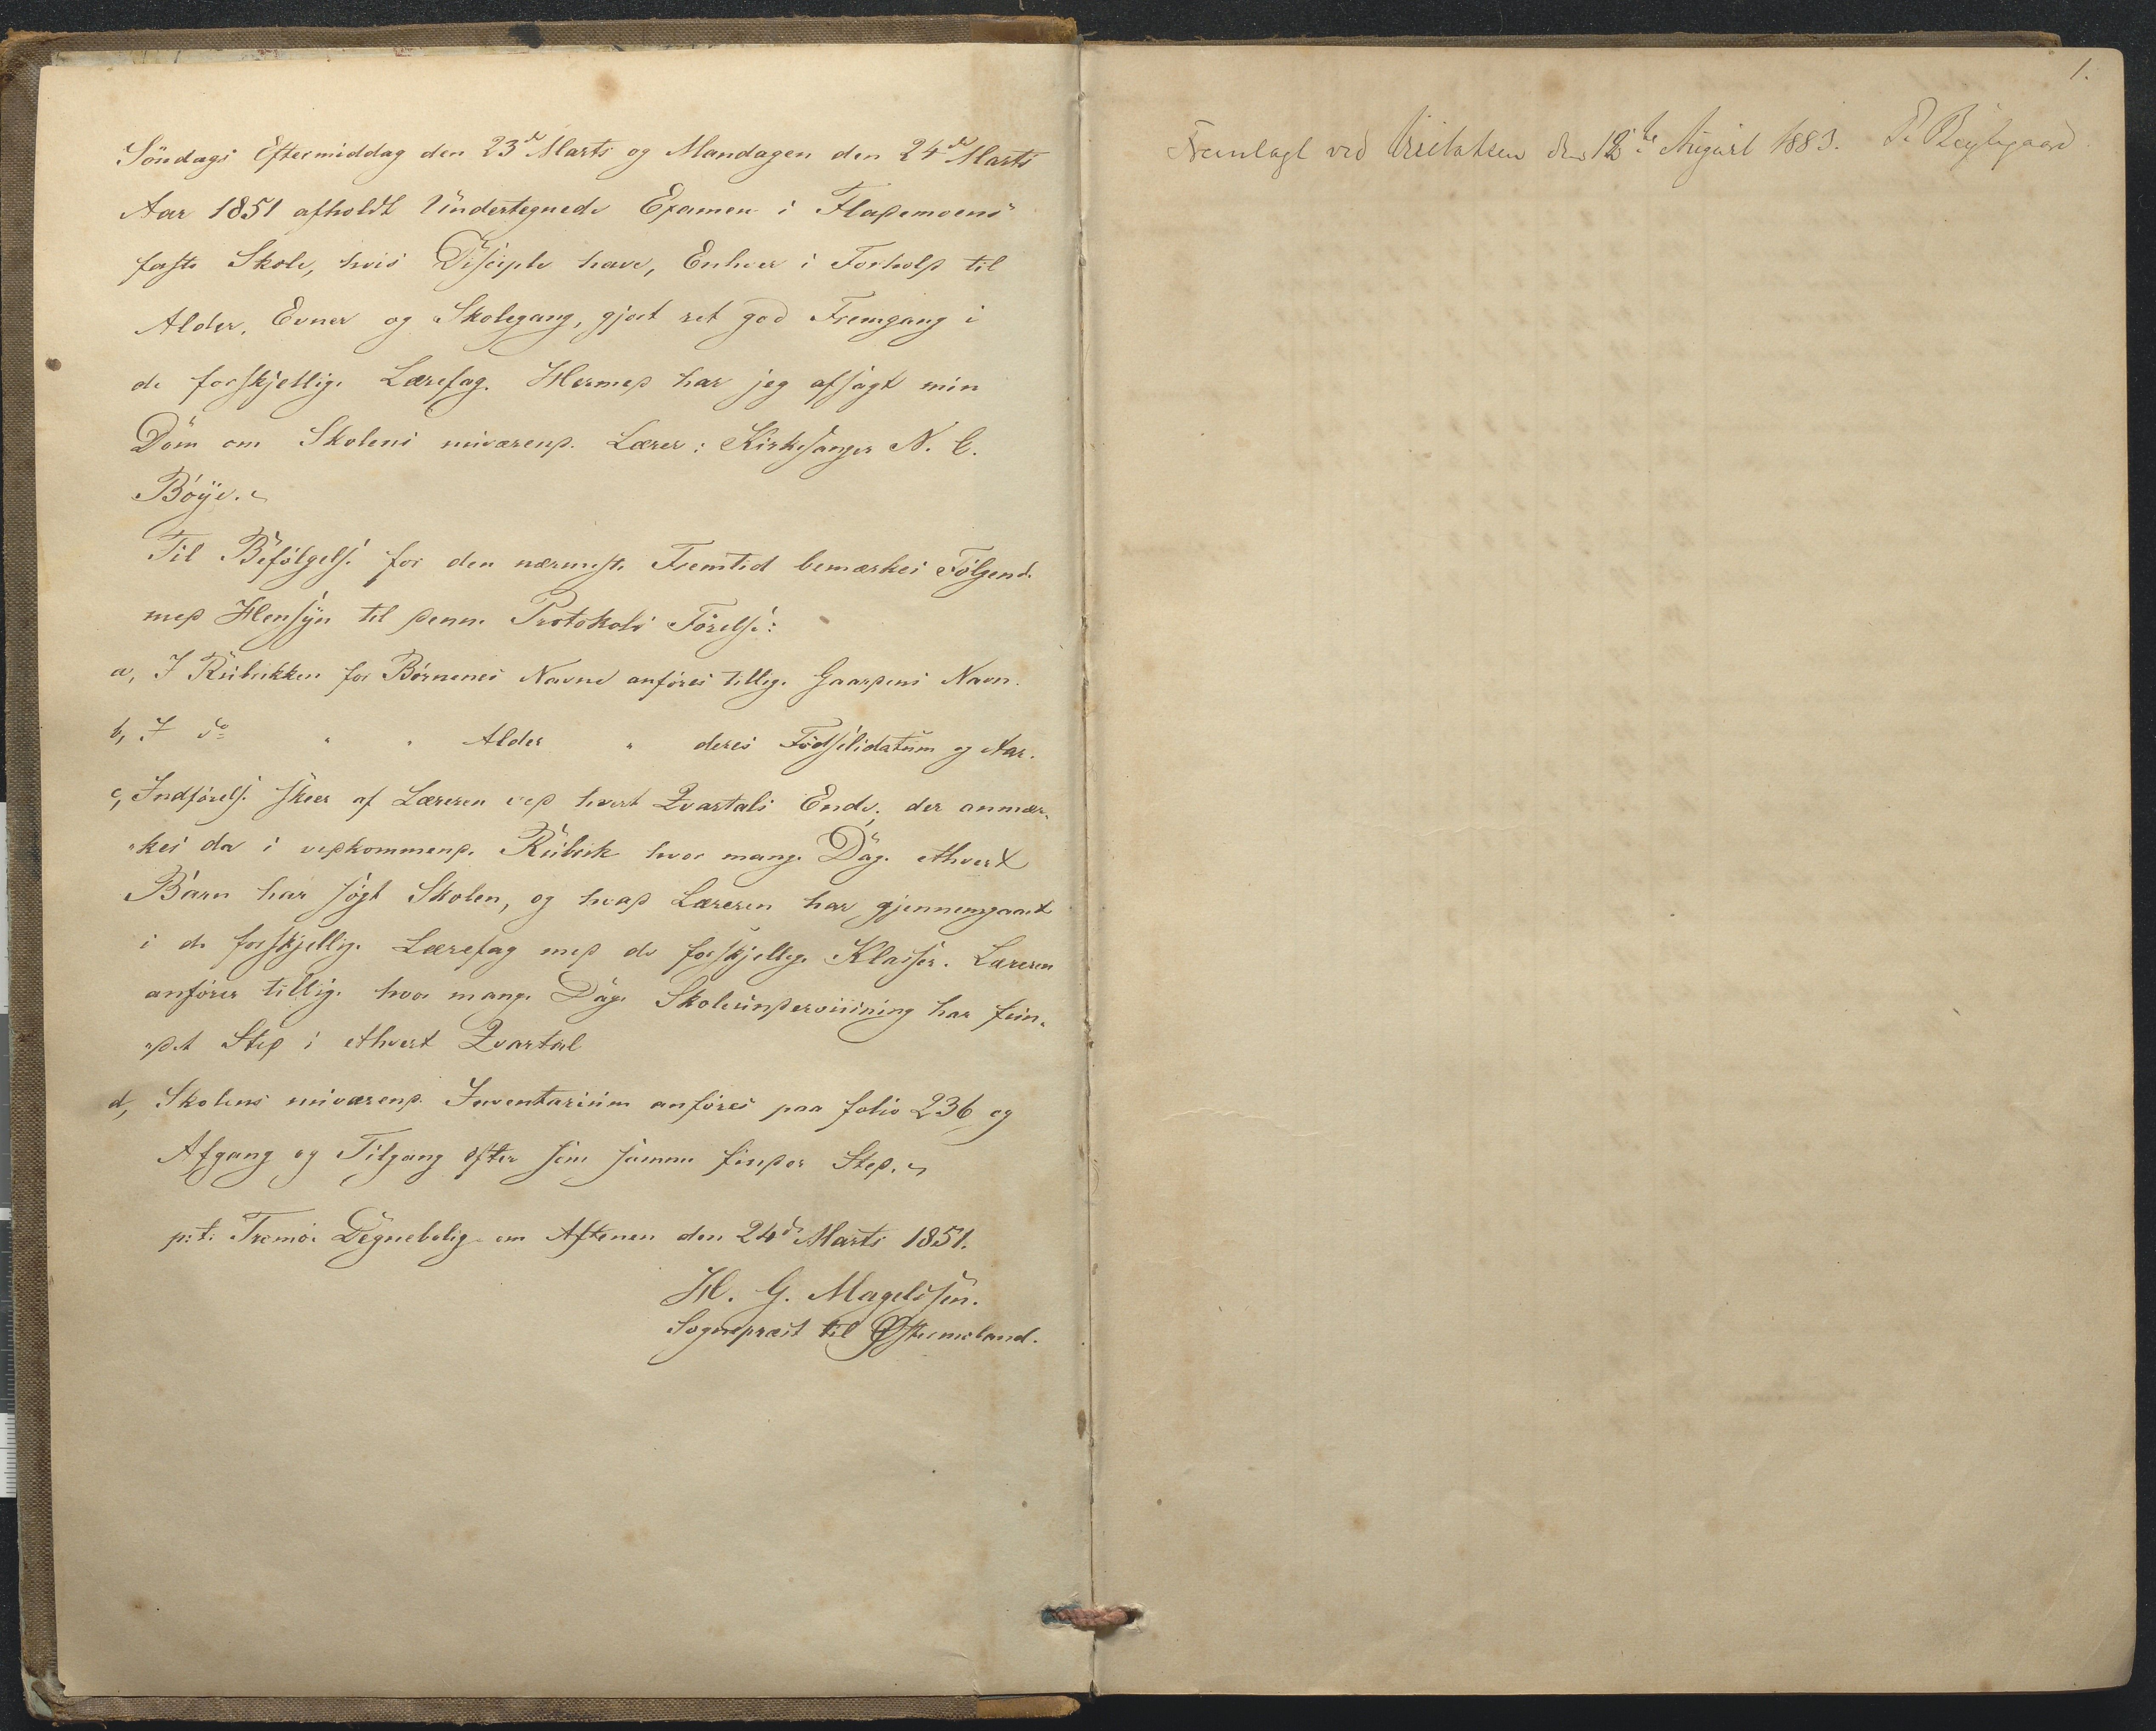 Söndags Eftermiddag den 23de Marts og Mandagen den 24de Marts
Aar 1851 afholdt Undertegnede Examen i Fladsemoens
faste Skole, hvis Disciple have, Enhver i Forhold til
Alder, Evner og Skolegang, gjort ret god Fremgang i
de forskjellige Lærefag. Hermed har jeg afsagt min
Dom om Skolens nuværende Lærer: Kirkesanger N. C.
Böye.
Til Befölgelse for den nærmeste Fremtid bemærkes Fölgende
med Hensyn til denne Protokols Förelse:
a, I Rubrikken for Börnenes Navne anföres tillige Gaardens Navn.
b, I do " " Alder " deres Födselsdatum og Aar.
c, Indförelse skeer af Læreren ved hvert Qvartals Ende; der anmær-
kes da i vedkommende Rubrik hvor mange Dage ethvert
Barn har sögt Skolen, og hvad Læreren har gjennemgaaet
i de forskjellige Lærefag med de forskjellige Klasser. Læreren
anförer tillige hvor mange Dage Skoleundervisning har fun-
det Sted i ethvert Qvartal
d, Skolens nuværende Inventarium anföres paa folio 236 og
Afgang og Tilgang efter som samme finder Sted.
p: t: Tromö Degnebolig om Aftenen den 24de Marts 1851.
H. G. Magelssen.
Sogneprest til Østremoland.
1.
Fremlagt ved Visitatsen den 12te August 1883.